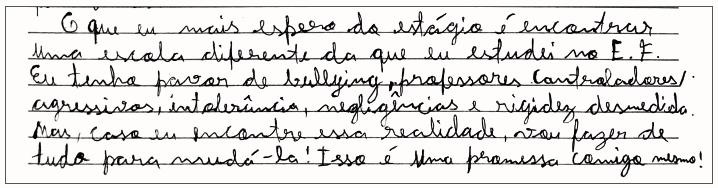 O que eu mais espero do estágio é encontrar
uma escola diferente da que eu estudei no E.F.
Eu tenho pavor de bullying, professores controladores/
agressivos, intolerância, negligências e rigidez desmedida.
Mas, caso eu encontre essa realidade, vou fazer de
tudo para mudá-la! Isso é uma promessa comigo mesmo!